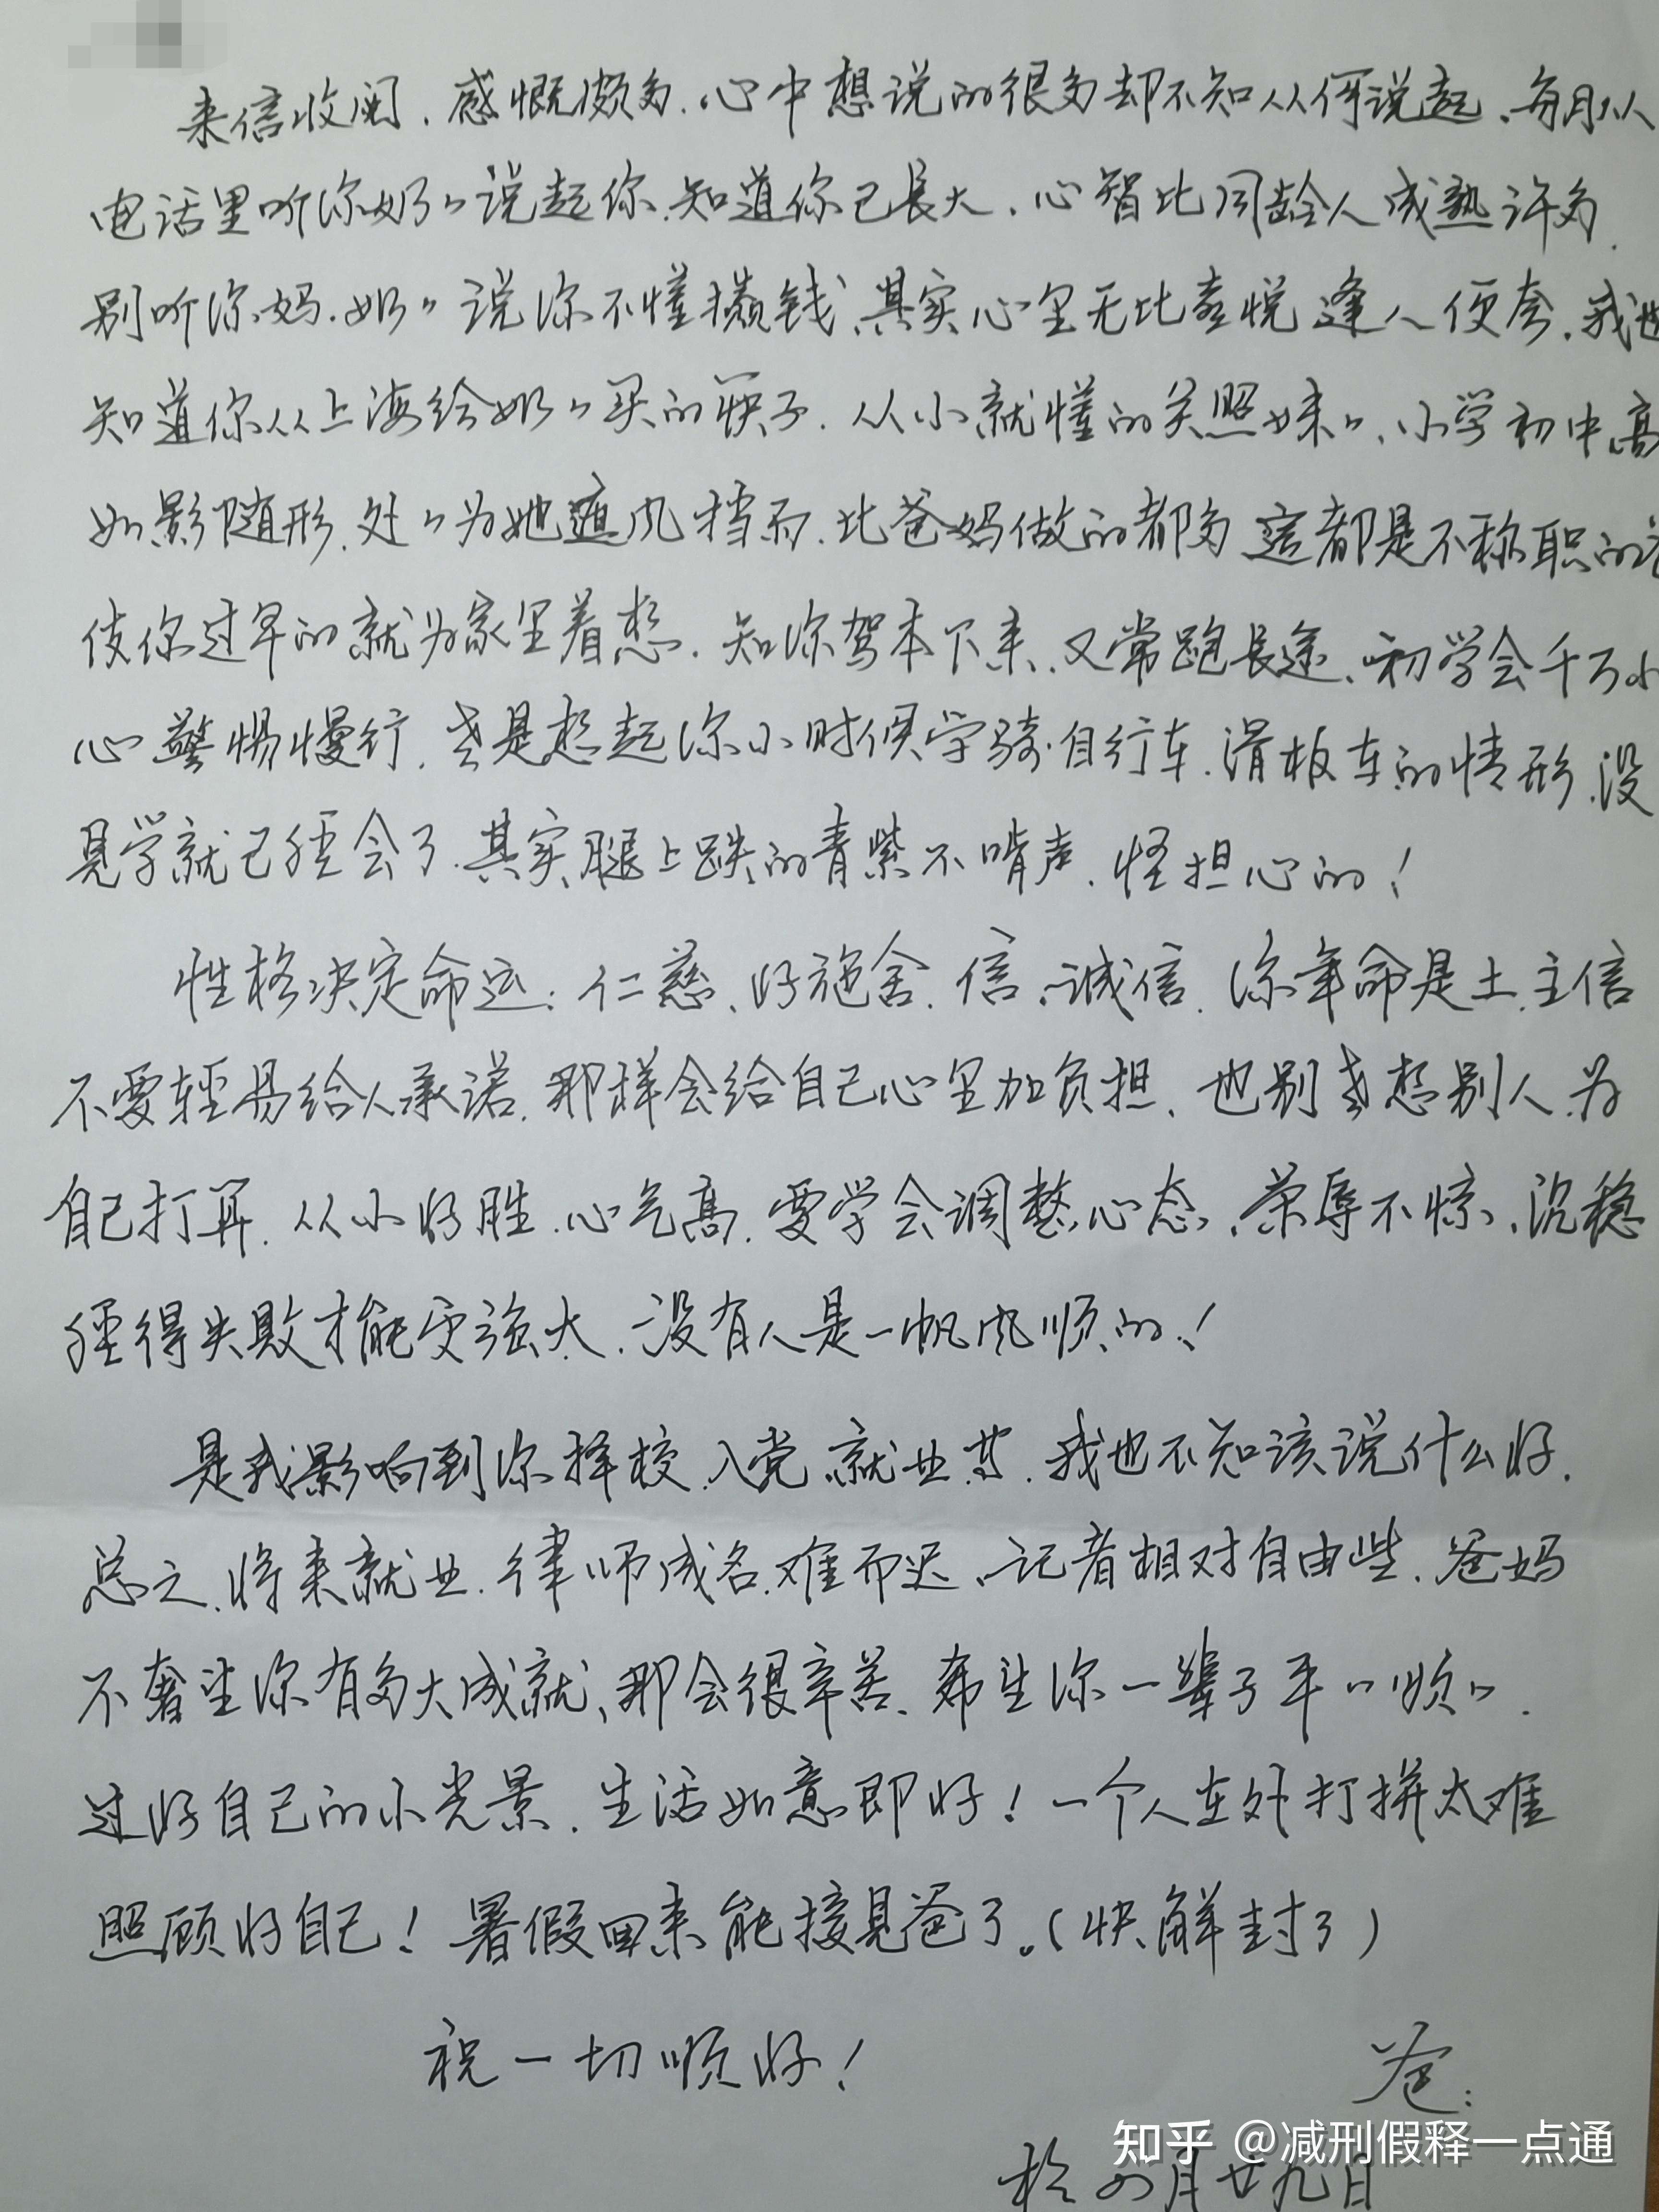 来信收阅，感慨颇多，心中想说的很多却不知从何说起，每月从
电话里听你奶〃说起你，知道你已長大，心智比同龄人成熟许多，
别听你妈、奶〃说你不懂攒钱，其实心里无比喜悦逢人便夸，我也
知道你从上海给奶〃买的筷子，从小就懂的关照妹〃，小学初中高
如影随形，处〃为她遮风挡雨，比爸妈做的都多這都是不称职的
使你过早的就为家里着想，知你驾本下来，又常跑長途，初学会千万小
心警惕慢行，老是想起你小时候学骑自行车，滑板车的情形，没
見学就已經会了，其实腿上跌的青紫不啃声，怪担心的！
性格决定命运：仁慈、好施舍，信、诚信，你年命是土，主信
不要輕易给人承诺，那样会给自己心里加负担，也别老想别人为
自己打算，从小好胜，心气高，要学会调整心态，荣辱不惊，沉稳
經得失败才能更强大，没有人是一帆风顺的！
是我影响到你择校、入党、就业等，我也不知该说什么好，
总之，将来就业，律师成名难而迟，记者相对自由些，爸妈
不奢望你有多大成就，那会很辛苦，希望你一辈子平〃顺〃，
过好自己的小光景，生活如意即好！一个人在外打拼太难
照顾好自己！暑假回来能接見爸了。（快解封了）
祝一切顺好！
爸：
於四月廿九日
知乎 @减刑假释一点通